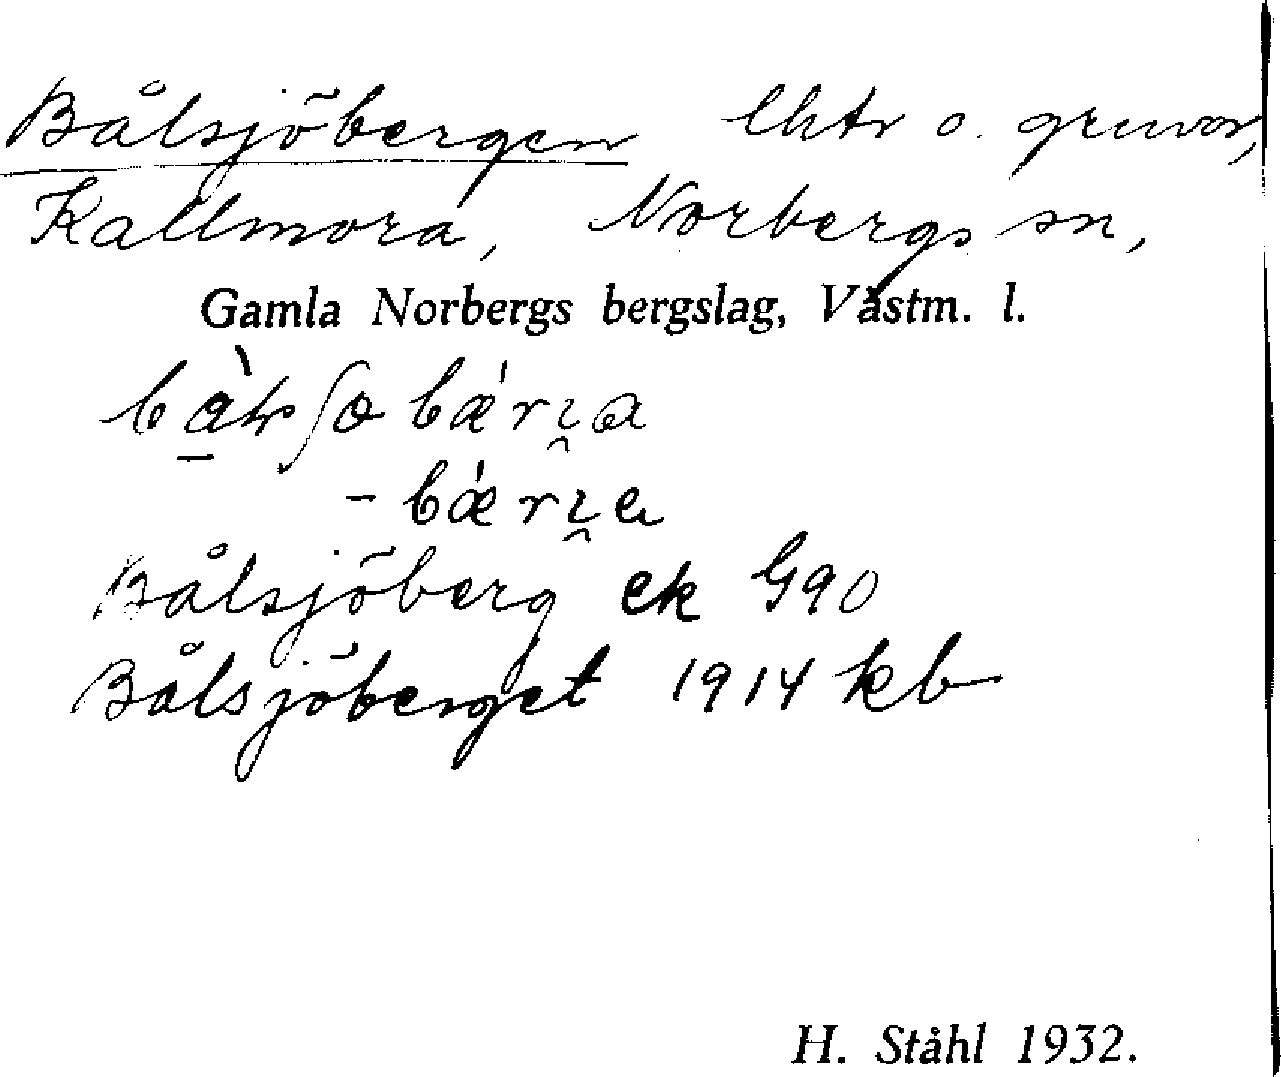 Bålsjöbergen lhtr o. gruvor,
Kallmora, Norbergs sn,
Gamla Norbergs bergslag, Västm. l.
Bålsjöberg ek G90
Bålsjöberget 1914 kb
H. Ståhl 1932.